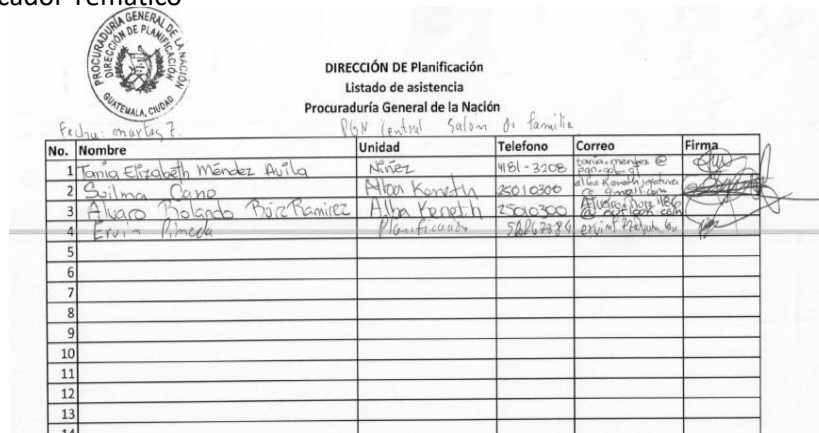 cador Temático
PROCURADURÍA GENERAL DE LA NACIÓN
DIRECCIÓN DE PLANIFICACIÓN
GUATEMALA, CIUDAD
DIRECCIÓN DE Planificación
Listado de asistencia
Procuraduría General de la Nación
Fecha: martes 7. PGN Central Salon de familia
No. Nombre Unidad Telefono Correo Firma
1 Tania Elizabeth Méndez Avila Niñez 4181-3208 tania.mendez @ pgn.gob.gt
2 Suilma Cano Alba Keneth 25010300
3 Alvaro Rolando Ruiz Ramirez Alba Keneth 25010300
4 Ervin Pineda Planificación
5
6
7
8
9
10
11
12
13
14